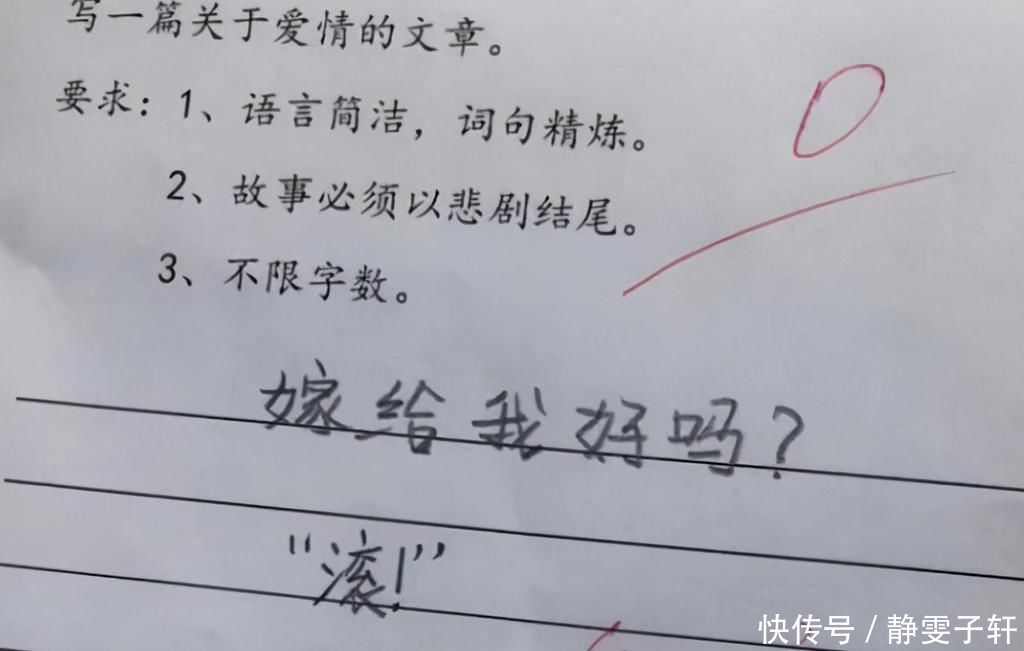 写一篇关于爱情的文章。
要求：1、语言简洁，词句精炼。
2、故事必须以悲剧结尾。
3、不限字数。
0
嫁给我好吗？
“滚！”
快传号 / 静雯子轩